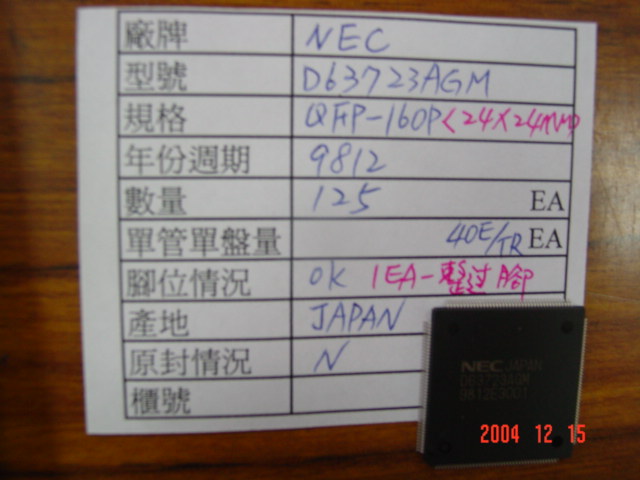 廠牌 NEC
型號 D63723AGM
規格 QFP-160P <24X24MM>
年份週期 9812
數量 125 EA
單管單盤量 40E/TR EA
腳位情況 OK 1EA-整过腳
產地 JAPAN
原封情況 N
櫃號
NEC JAPAN
D63723AGM
9812E9001
2004 12 15